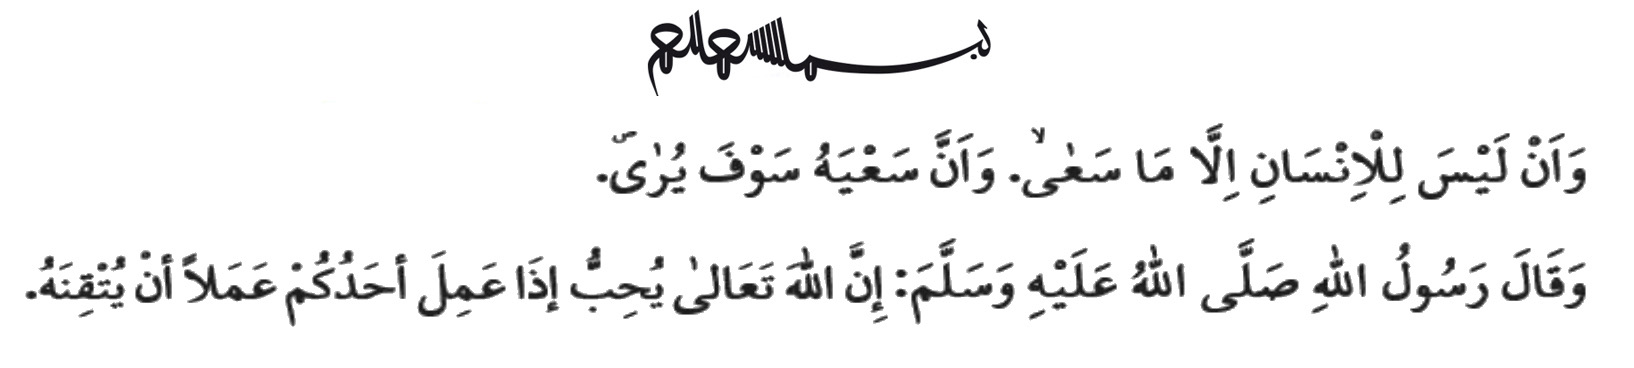 بسم الله الرحمن الرحيم
وَاَنْ لَيْسَ لِلْاِنْسَانِ اِلَّا مَا سَعٰىۙ. وَاَنَّ سَعْيَهُ سَوْفَ يُرٰىۖ.
وَقَالَ رَسُولُ اللّٰهِ صَلَّى اللّٰهُ عَلَيْهِ وَسَلَّمَ: إِنَّ اللّٰهَ تَعَالىٰ يُحِبُّ إِذَا عَمِلَ أحَدُكُمْ عَمَلاً أنْ يُتْقِنَهُ.